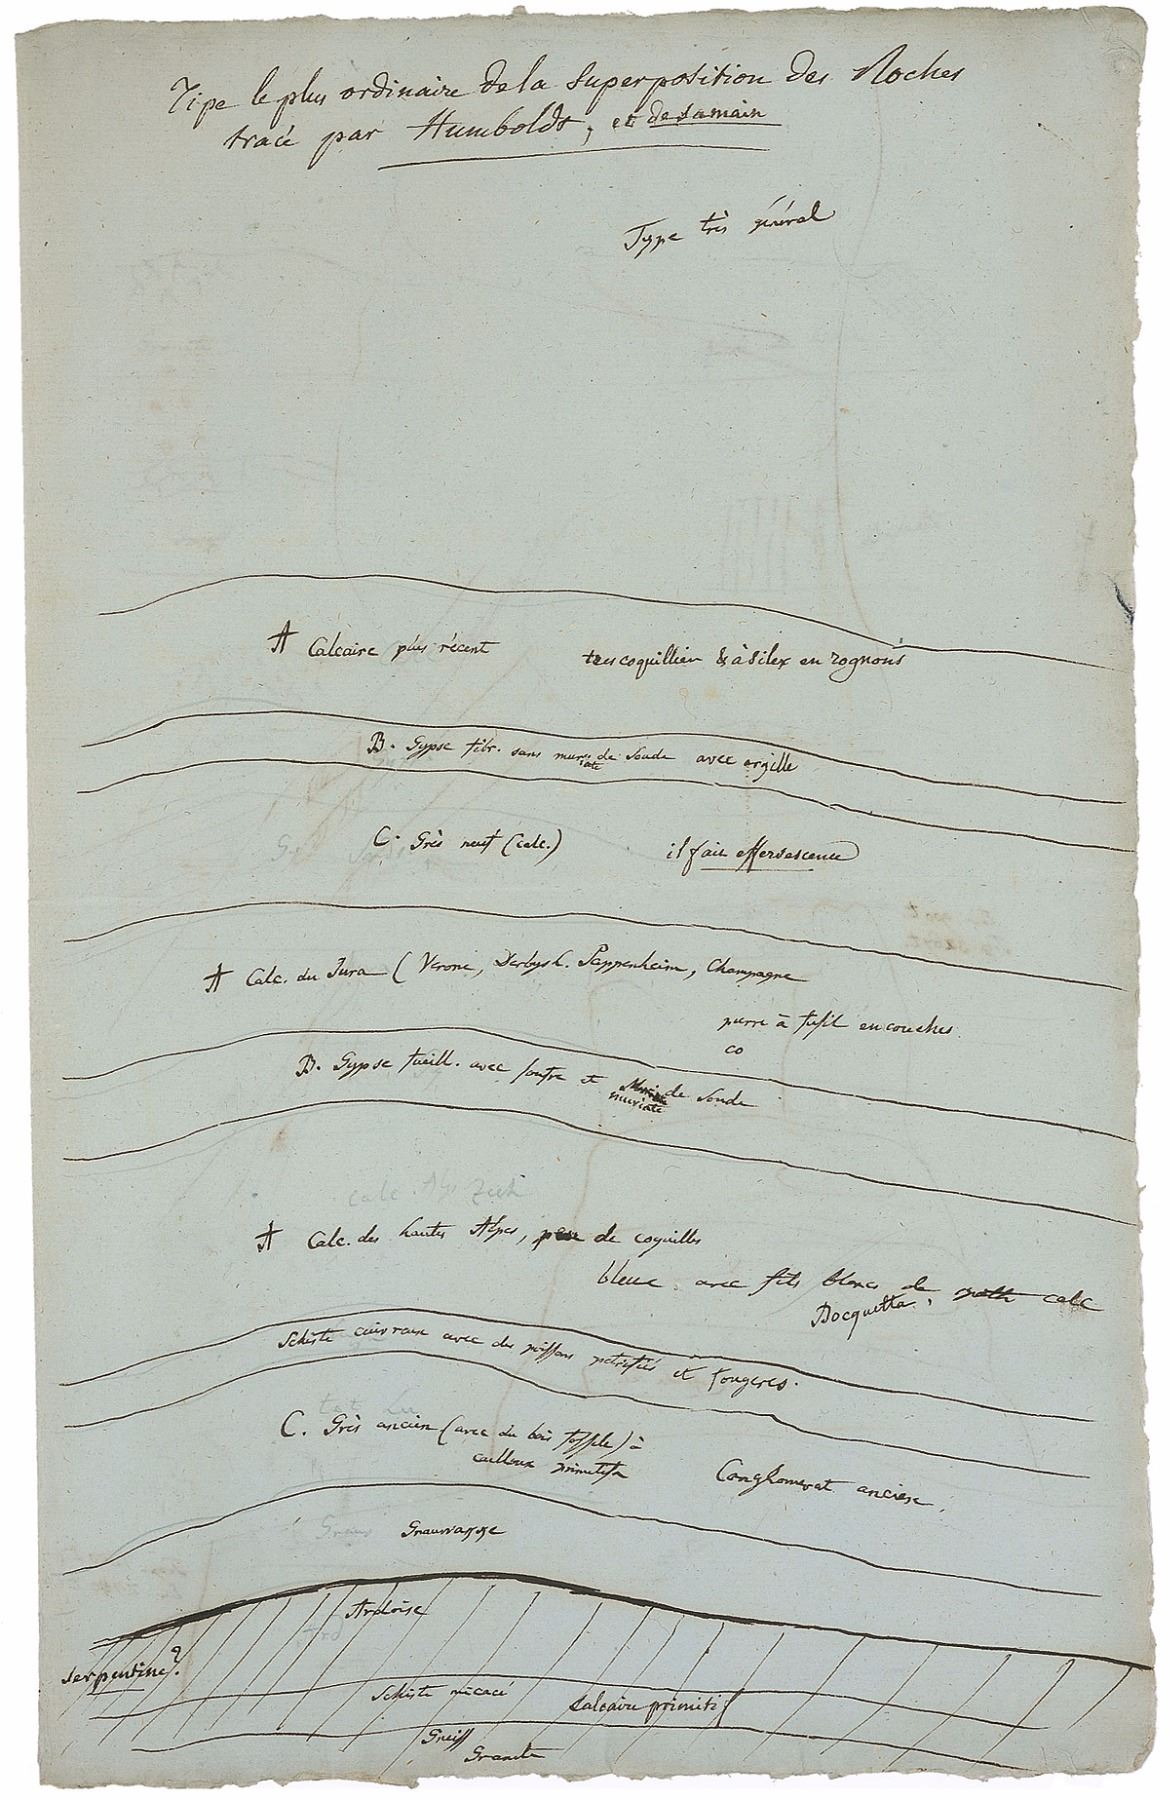 Tipe le plus ordinaire de la Superposition des Roches
tracé par Humboldt, et de sa main
Type très général
A Calcaire plus récent tres coquillier & à silex en rognons
B. Gypse fibr. sans muriate de Soude avec argille
C. Grès neuf (calc.) il fait effervescence
A Calc. du Jura (Verone, Derbysh. Pappenheim, Champagne
pierre à fusil en couches
co
B. Gypse fueill. avec soufre et muriate de Soude
calc. Alp Zech
A Calc. des hautes Alpes, peu de coquilles
bleue avec fils blancs de calc
Bocquetta.
Schiste cuivreux avec des poissons petrifiés et fougeres.
C. Grès ancien (avec du bois fossile) à
cailloux primitifs
Conglomerat ancien.
Grauwakke
Ardoise
Serpentine?
Schiste micacé Calcaire primitif
Gneiss
Granite